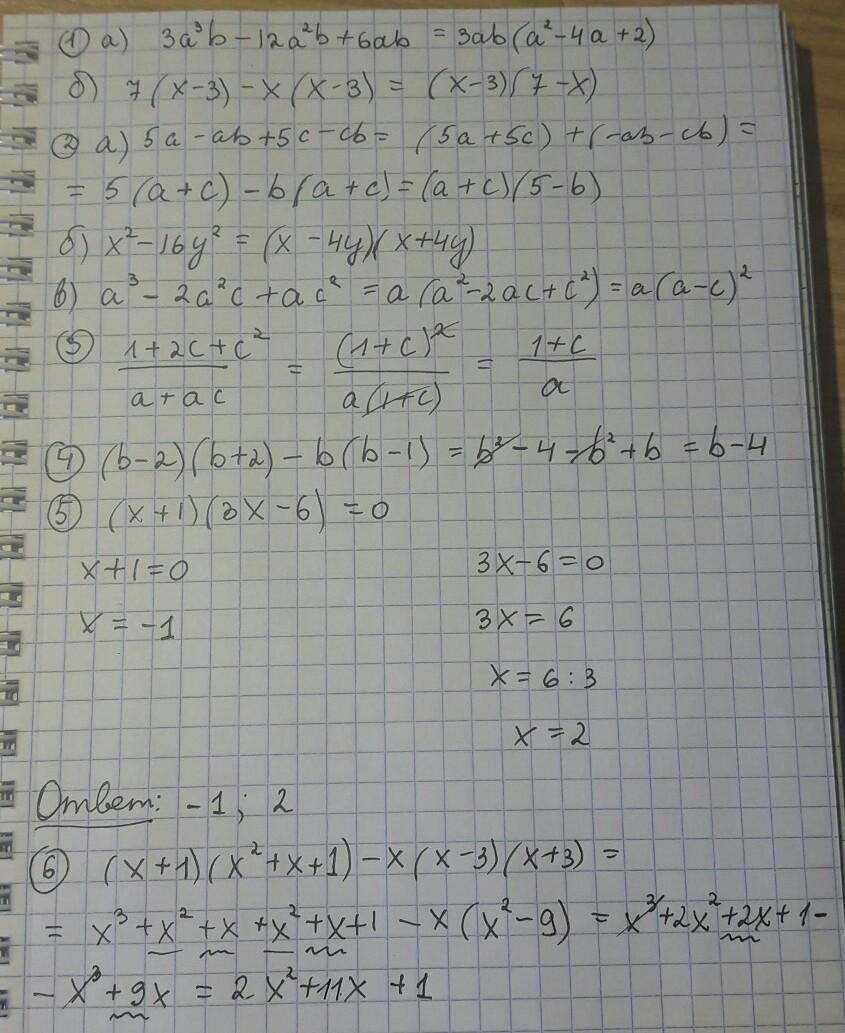 ① а) 3a³b – 12a²b + 6ab = 3ab(a² – 4a + 2)
б) 7(x – 3) – x(x – 3) = (x – 3)(7 – x)
② а) 5a – ab + 5c – cb = (5a + 5c) + (–ab – cb) =
= 5(a + c) – b(a + c) = (a + c)(5 – b)
б) x² – 16y² = (x – 4y)(x + 4y)
в) a³ – 2a²c + ac² = a(a² – 2ac + c²) = a(a – c)²
③ (1 + 2c + c²)/(a + ac) = (1 + c)²/(a(1 + c)) = (1 + c)/a
④ (b – 2)(b + 2) – b(b – 1) = b² – 4 – b² + b = b – 4
⑤ (x + 1)(3x – 6) = 0
x + 1 = 0 3x – 6 = 0
x = –1 3x = 6
x = 6 : 3
x = 2
Ответ: –1; 2
⑥ (x + 1)(x² + x + 1) – x(x – 3)(x + 3) =
= x³ + x² + x + x² + x + 1 – x(x² – 9) = x³ + 2x² + 2x + 1 –
– x³ + 9x = 2x² + 11x + 1